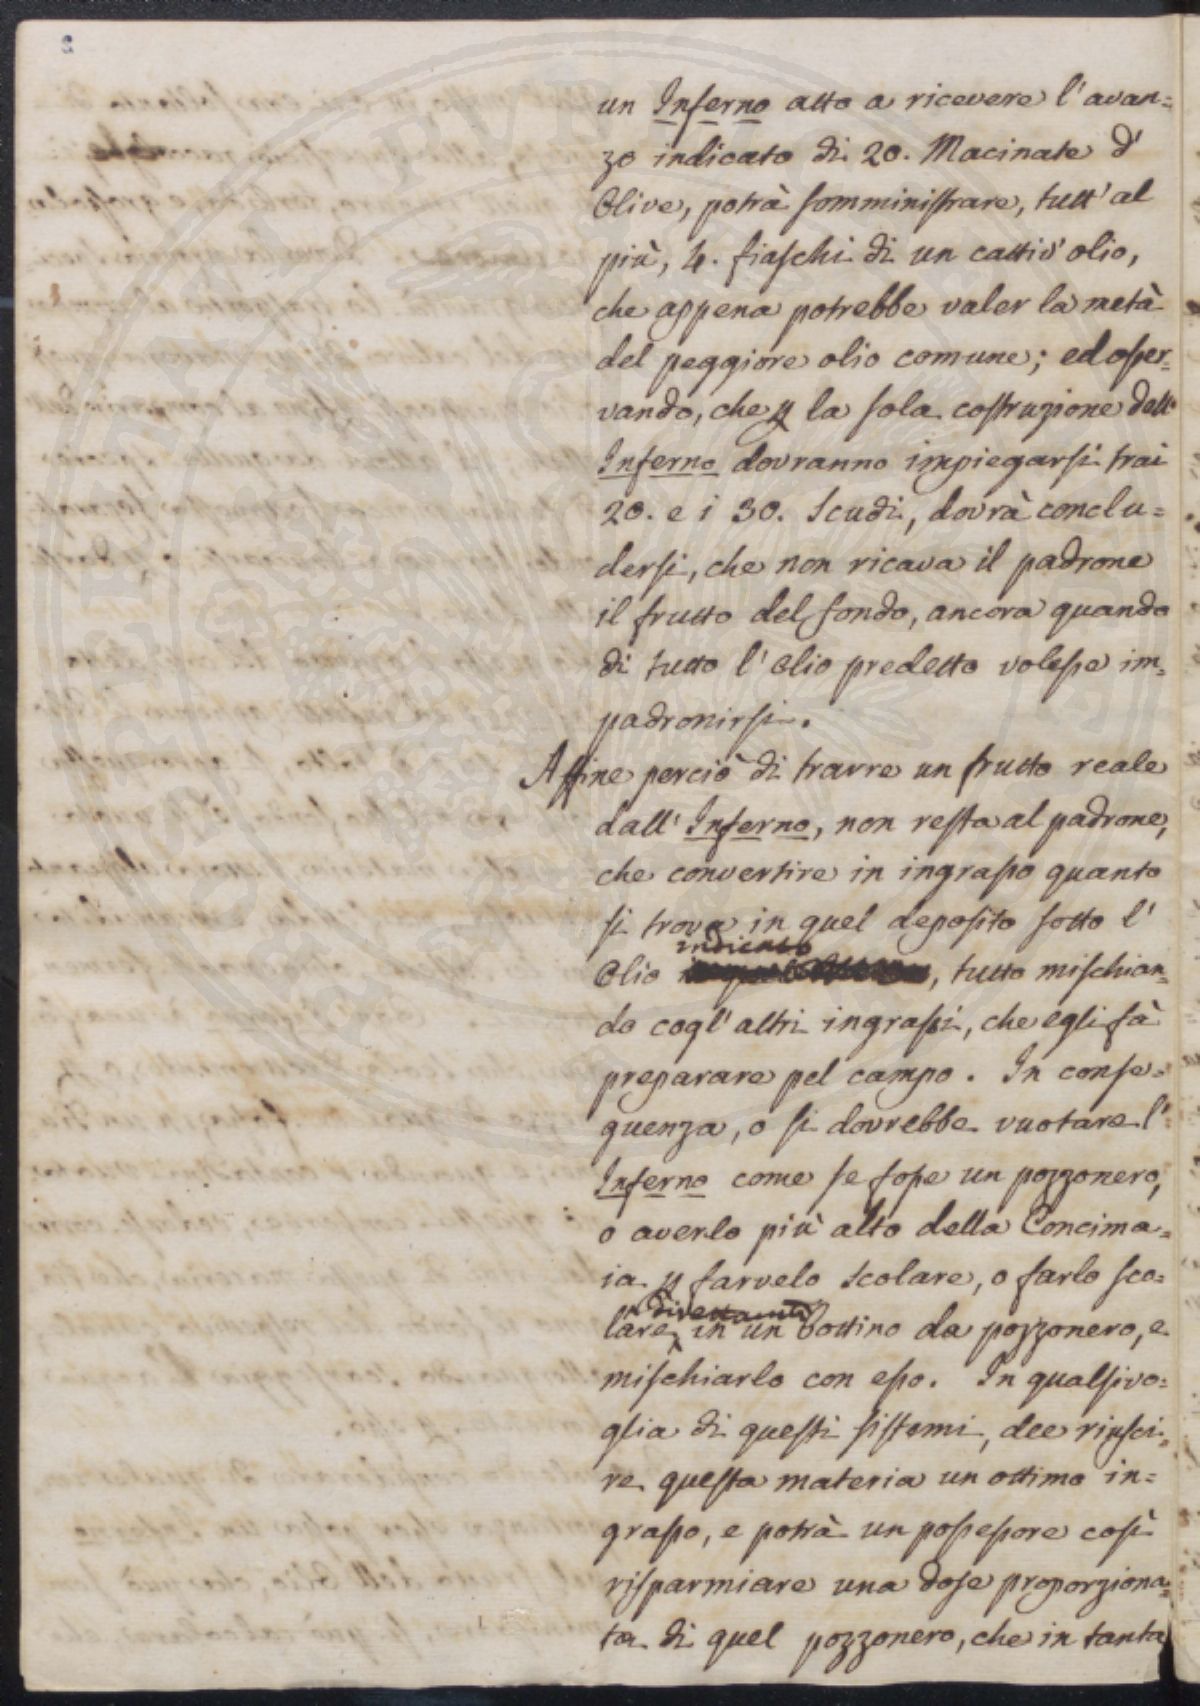 2
un Inferno atto a ricevere l'avan=
zo indicato di 20. Macinate d'
Olive, potrà somministrare, tutt'al
più, 4. fiaschi di un cattiv'olio,
che appena potrebbe valer la metà
del peggiore olio comune; ed osser=
vando, che p la sola costruzione dell'
Inferno dovranno impiegarsi trai
20. e i 30. Scudi, dovrà conclu=
dersi, che non ricava il padrone
il frutto del fondo, ancora quando
di tutto l'Olio predetto volesse im=
padronirsi.
Affine perciò di trarre un frutto reale
dall'Inferno, non resta al padrone,
che convertire in ingrasso quanto
si trova in quel deposito sotto l'
indicato
Olio, tutto mischian=
do cogl'altri ingrassi, che egli fà
preparare pel campo. In conse=
guenza, o si dovrebbe vuotare l'
Inferno come se fosse un pozzonero,
o averlo più alto della Concima=
ia p farvelo scolare, o farlo sco=
direttamte
lare in un bottino da pozzonero, e
mischiarlo con esso. In qualsivo=
glia di questi sistemi, dee riusci=
re questa materia un ottimo in=
grasso, e potrà un possessore così
risparmiare una dose proporziona=
ta di quel pozzonero, che in tanta